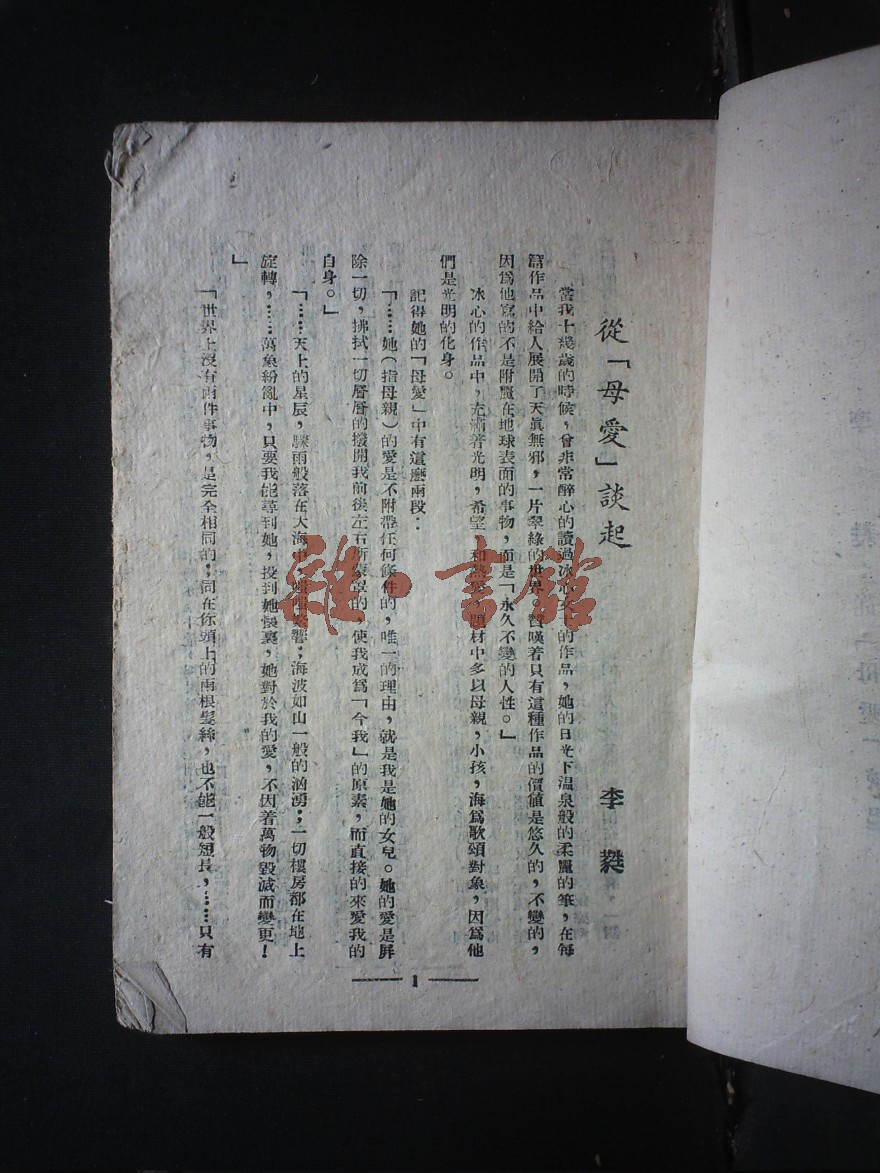 從「母愛」談起
李蕤
當我十幾歲的時候，曾非常醉心的讀過冰心女士的作品，她的日光下溫泉般的柔麗的筆，在每
篇作品中給人展開了天真無邪，一片翠綠的世界，贊嘆着只有這種作品的價値是悠久的，不變的，
因爲他寫的不是附麗在地球表面的事物，而是「永久不變的人性。」
冰心的作品中，充滿着光明，希望，和熱愛，題材中多以母親，小孩，海爲歌頌對象，因爲他
們是光明的化身。
記得她的「母愛」中有這麽兩段：
「……她(指母親)的愛是不附帶任何條件的，唯一的理由，就是我是她的女兒。她的愛是屛
除一切，拂拭一切層層的撥開我前後左右所蒙罩的，使我成爲「今我」的原素，而直接的來愛我的
自身。」
「……天上的星辰，驟雨般落在大海中，響；海波如山一般的汹湧；一切樓房都在地上
旋轉，……萬象紛亂中，只要我能尋到她，投到她懷裏，她對於我的愛，不因着萬物毀滅而變更！
」
「世界上沒有兩件事物，是完全相同的；同在你頭上的兩根髮絲，也不能一般短長，……只有
1
雜·書館